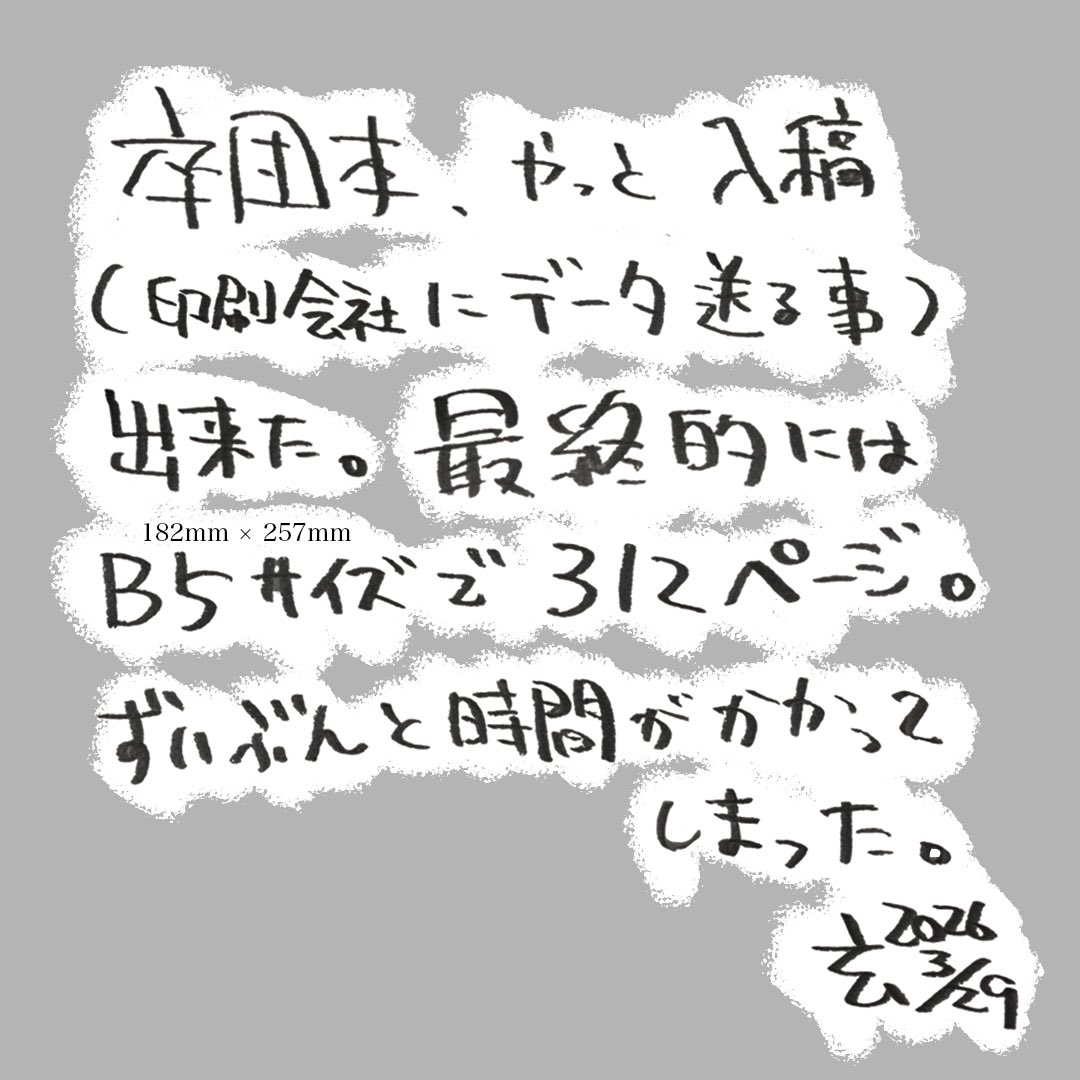 卒団本、やっと入稿
(印刷会社にデータ送る事)
出来た。最終的には
182mm × 257mm
B5サイズで312ページ。
ずいぶんと時間がかかって
しまった。
玄 2026
3/29